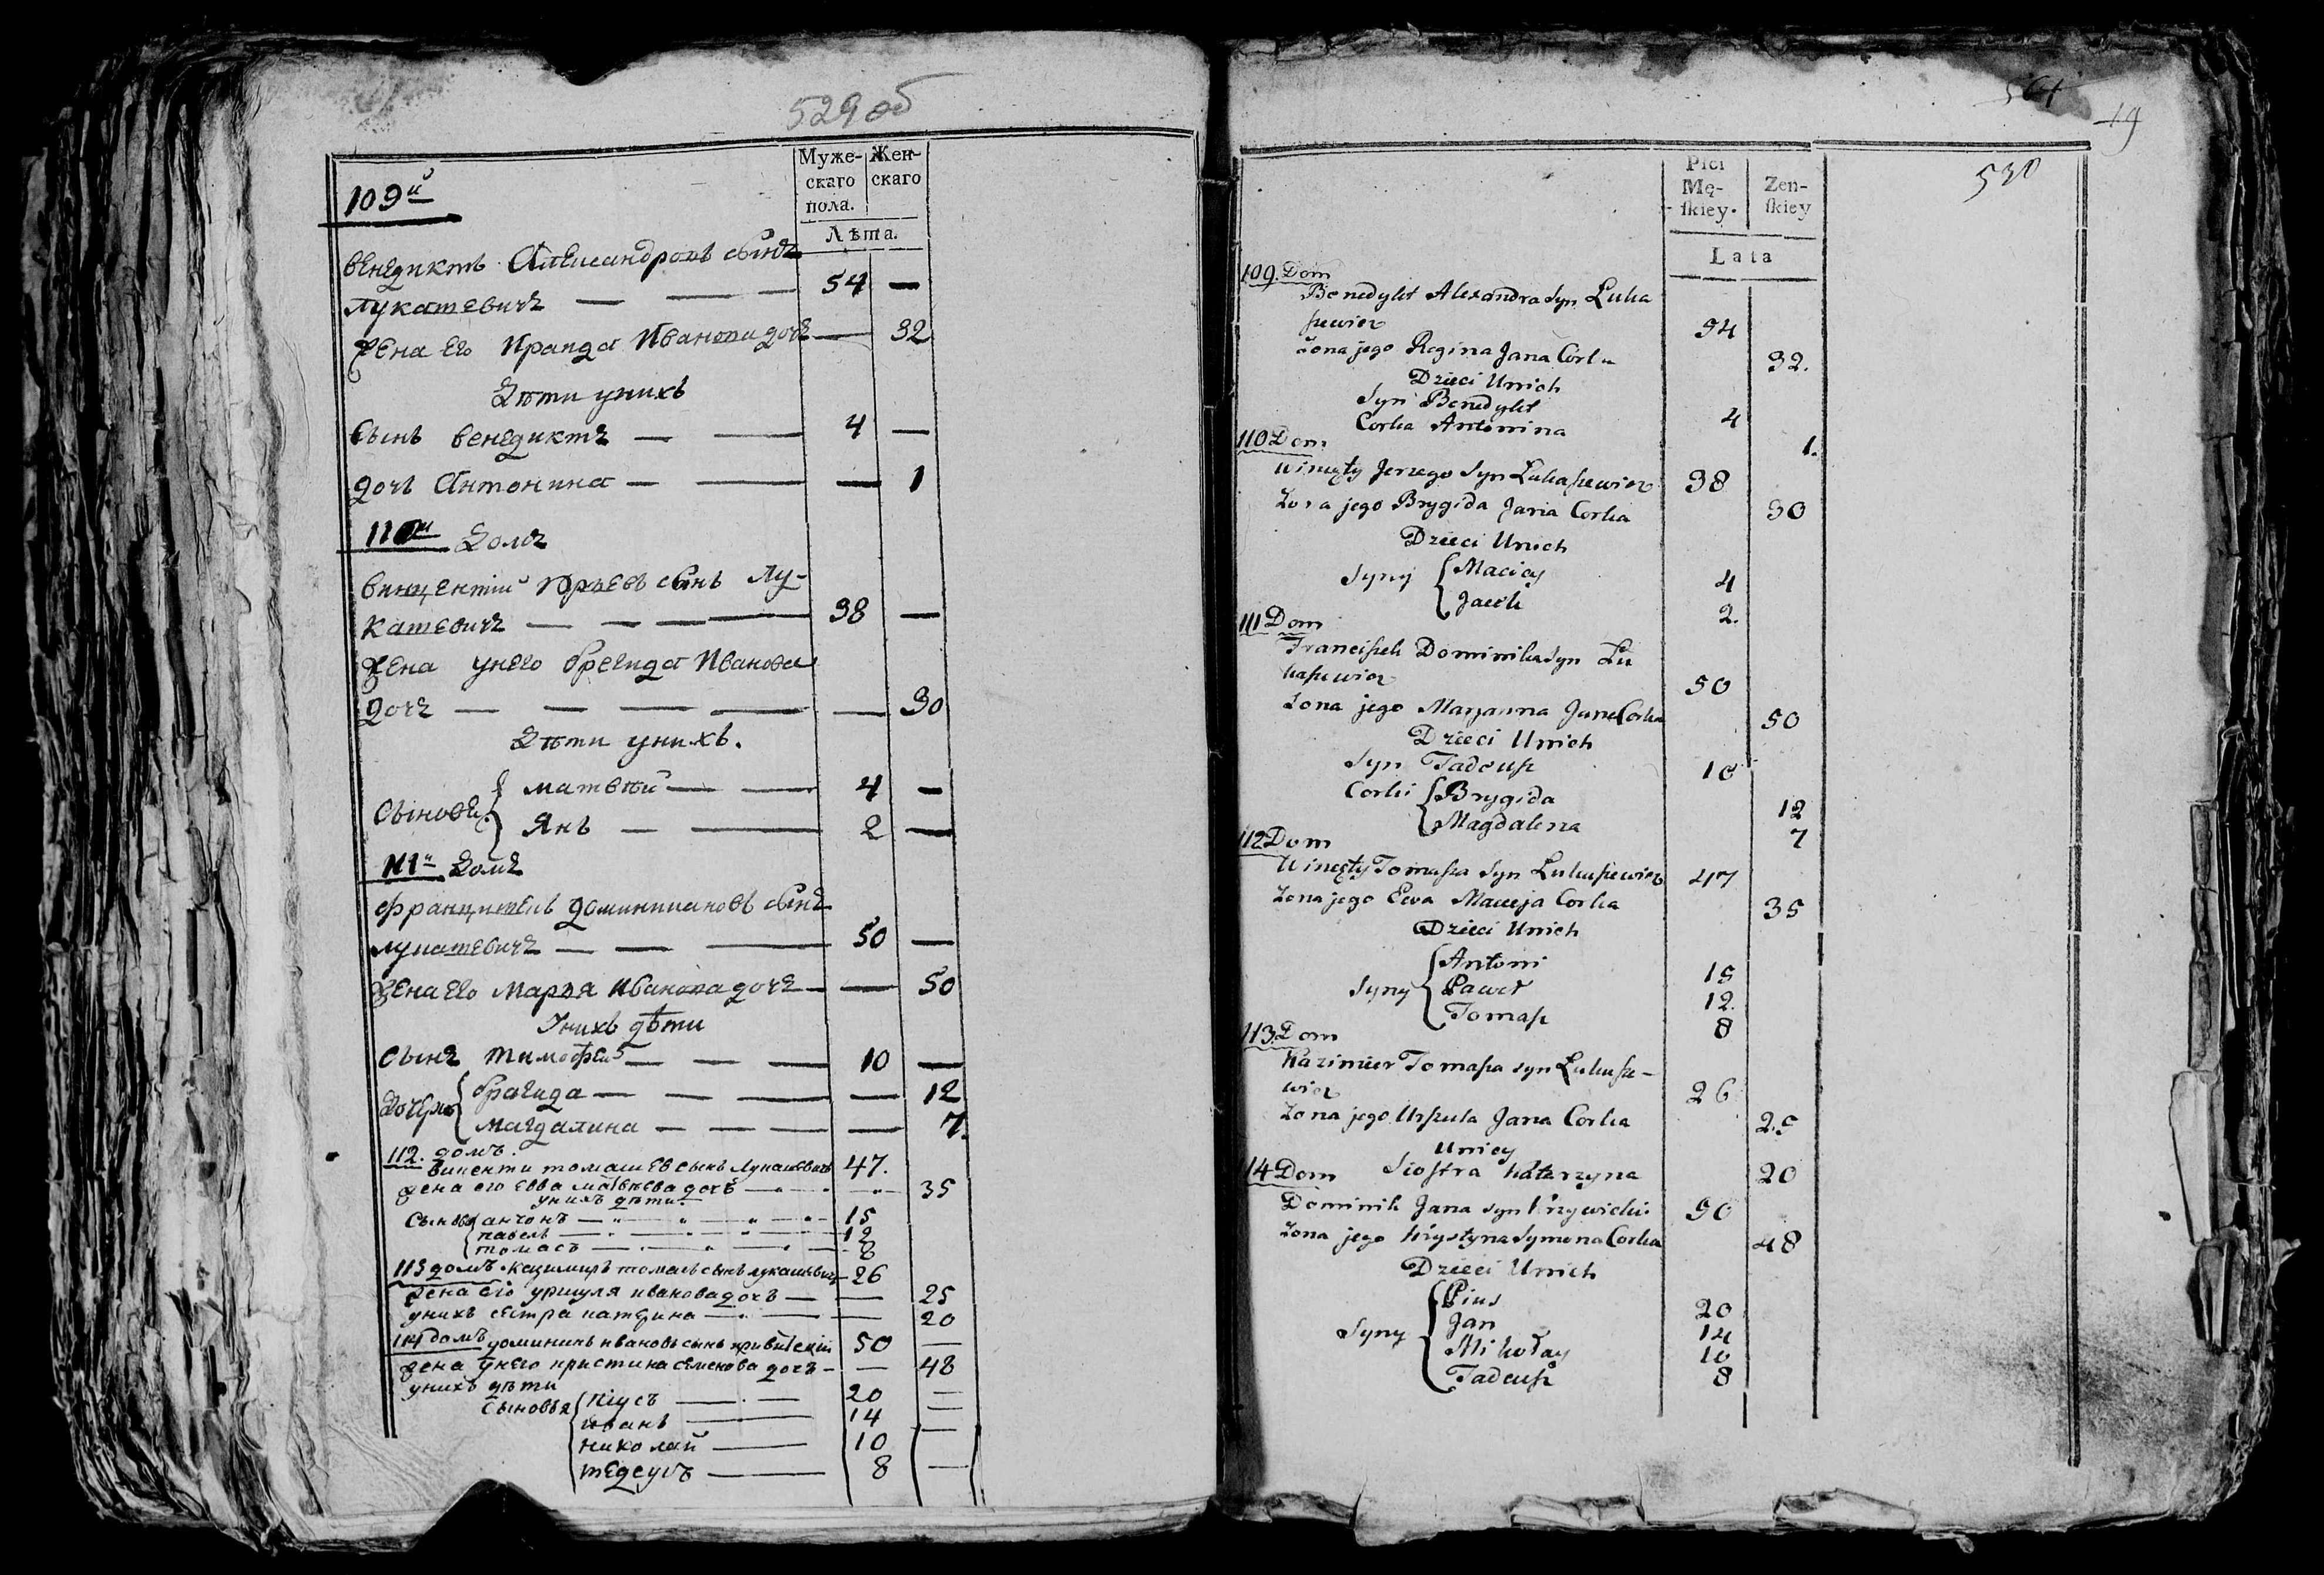 529 об
Муже-
скаго
пола.
Жен-
скаго
Лѣта.
109й
Венедиктъ Александровъ сынъ
Лукашевичъ — — — 54 —
жена его Иранда Иванова дочь — 32
Дѣти унихъ
Сынъ Венедиктъ — — 4 —
дочь Антонина — — — 1
110й Домъ
Винцентій Юрьевъ сынъ Лу-
кашевичъ — — — — 38 —
жена унего Брегида Иванова
дочъ — — — — — 30
Дѣти унихъ.
Сыновья { Матвѣй — — 4 —
Янъ — — 2 —
111й Домъ
Францишекъ Доминикановъ сынъ
Лукашевичъ — — — 50 —
жена его Марья Иванова дочъ — — 50
Унихъ дѣти
Сынъ Тимофей — — — 10 —
Дочери { Брагида — — — — 12
Магдалина — — — — 7.
112. домъ.
Виненти томашевъ сынъ Лукашевичъ 47.
жена его Евва Матвѣева дочъ — — 35
унихъ дѣти.
Сыновья { антонъ — 15
павелъ — 12
томасъ — 8
113 домъ Казимиръ томасъ сынъ лукашевичъ 26
жена его уршуля иванова дочъ — — 25
унихъ сестра катерина — — 20
114 домъ доминикъ ивановъ сынъ кривицкій 50 —
жена унего кристина семенова дочъ — — 48
унихъ дѣти
Сыновья { піусъ — 20 —
иванъ — 14 —
николай — 10 —
тедеушъ — 8 —
19
530
Płci
Mę-
ſkiey.
Zen-
ſkiey
Lata
109. Dom
Benedykt Alexandra Syn Łuka
szewicz 54
Żona jego Regina Jana Córka 32.
Dzieci Unich
Syn Benedykt 4
Corka Antonina 1.
110 Dom
Wincęty Jerzego Syn Łukaszewicz 38
Żona jego Brygida Jana Corka 30
Dzieci Unich
Syny { Maciey 4
Jacek 2.
111 Dom
Franciszek Dominika Syn Łu
kaszewicz 50
Żona jego Maryanna Jana Corka 50
Dzieci Unich
Syn Tadeusz 10
Corki { Brygida 12
Magdalena 7
112 Dom
Wincęty Tomasza Syn Łukaszewicz 47
Żona jego Ewa Macieja Corka 35
Dzieci Unich
Syny { Antoni 15
Paweł 12.
Tomasz 8
113. Dom
Kazimier Tomasza syn Łukasze-
wicz 26
Żona jego Urszula Jana Corka 25
Uniey
Siostra Katarzyna 20
114 Dom
Dominik Jana syn Krzywicki 50
Żona jego Krystyna Symona Corka 48
Dzieci Unich
Syny { Pius 20
Jan 14
Mikołay 10
Tadeusz 8